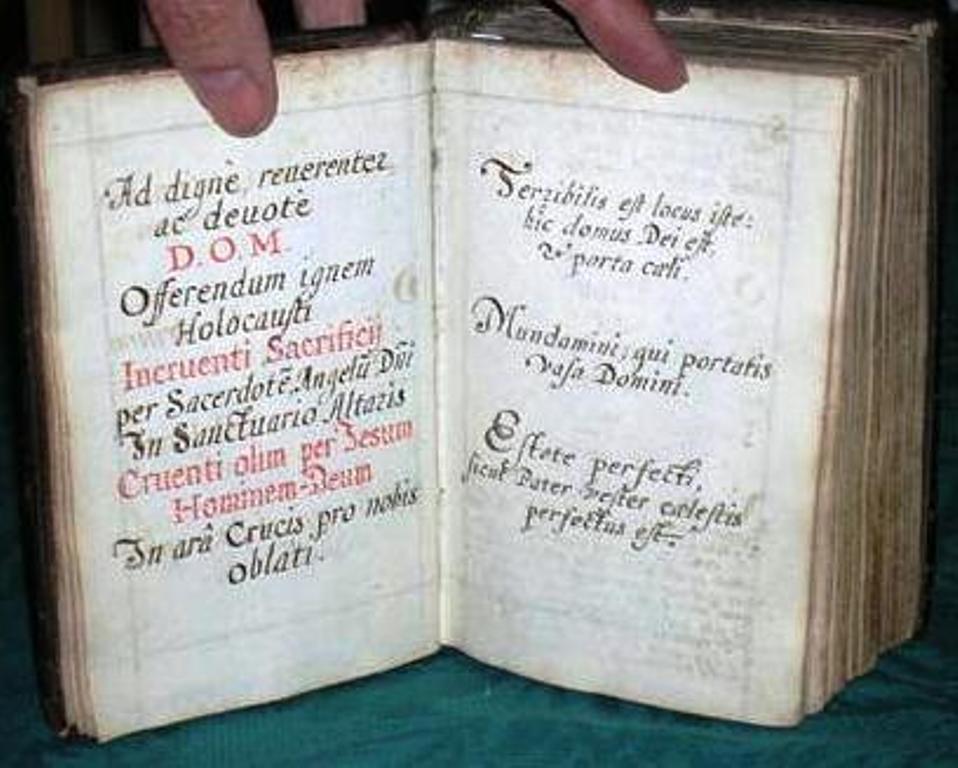 Ad dignè, reuerenter
ac deuotè
D. O. M.
Offerendum ignem
Holocausti
Incruenti Sacrificij
per Sacerdotē Angelū Dn̄i
In Sanctuario Altaris
Cruenti olim per Iesum
Hominem-Deum
In arâ Crucis pro nobis
oblati.
Terribilis est locus iste:
hic domus Dei est,
& porta cæli.
Mundamini, qui portatis
vasa Domini.
Estote perfecti,
sicut Pater vester cælestis
perfectus est.